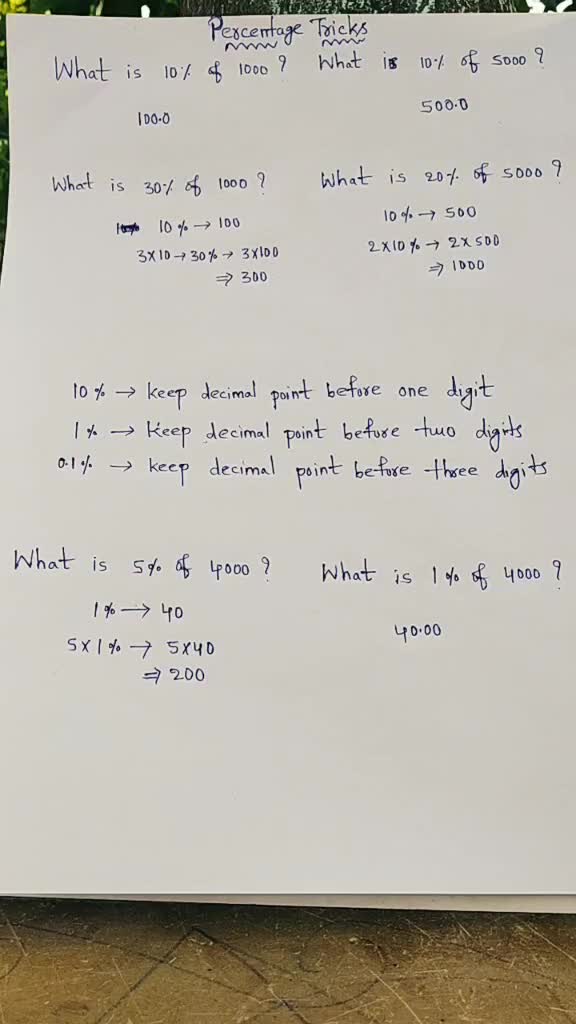 Percentage Tricks
What is 10% of 1000 ?
What is 10% of 5000 ?
100.0
500.0
What is 30% of 1000 ?
What is 20% of 5000 ?
10% → 100
3×10 → 30% → 3×100
⇒ 300
10% → 500
2×10% → 2×500
⇒ 1000
10% → keep decimal point before one digit
1% → keep decimal point before two digits
0.1% → keep decimal point before three digits
What is 5% of 4000 ?
What is 1% of 4000 ?
1% → 40
5×1% → 5×40
⇒ 200
40.00